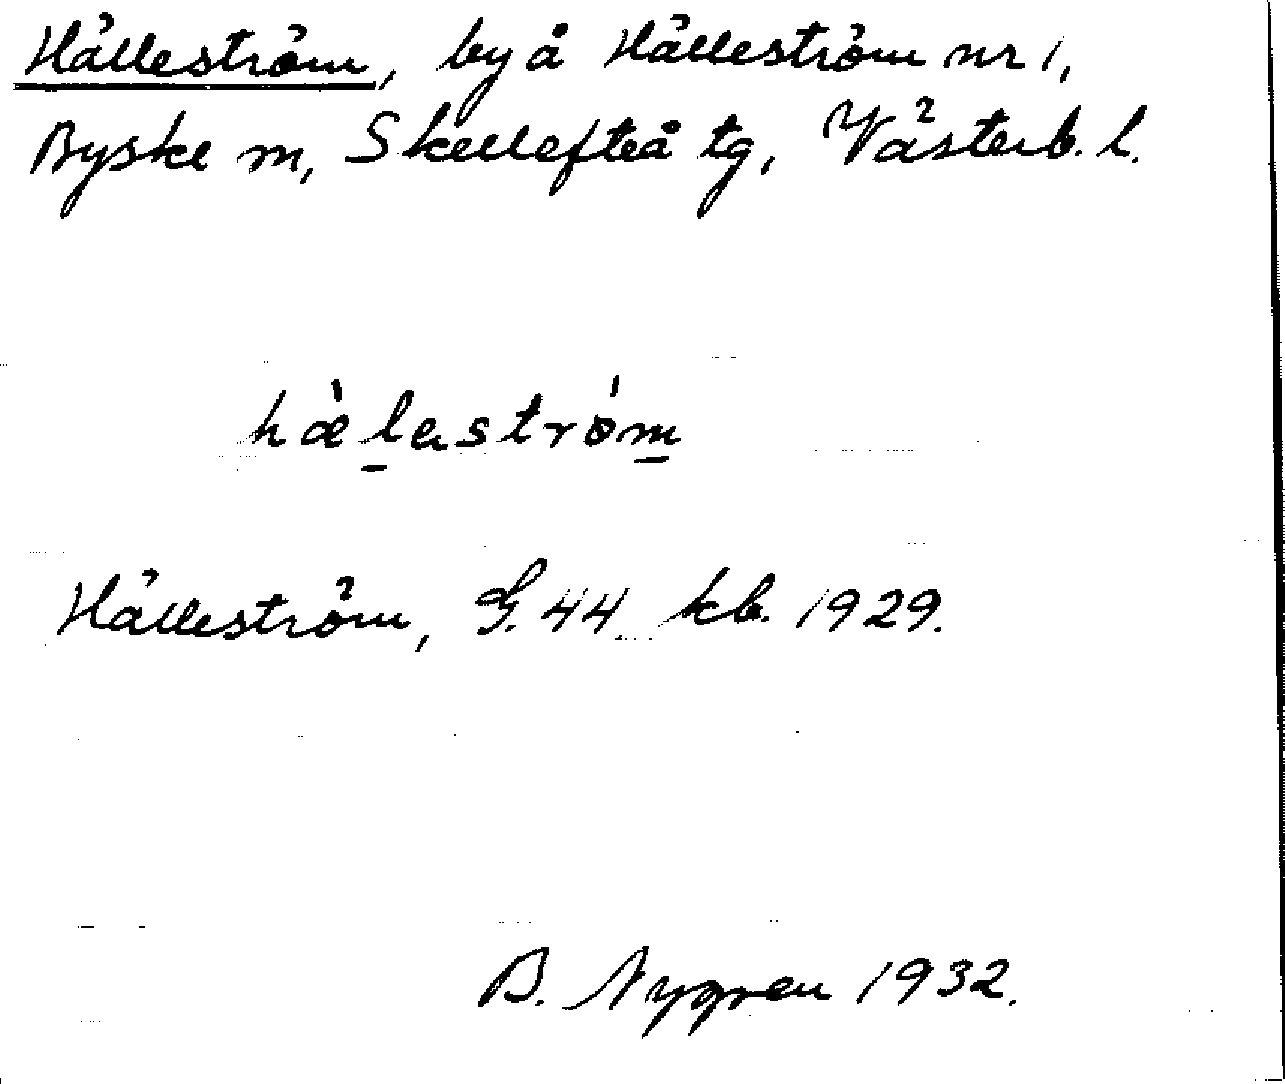 Hälleström, by å Hälleström nr 1,
Byske sn, Skellefteå tg, Västerb. l.
hæ̀l̠eström̠
Hälleström, G. 44 kb. 1929.
B. Nygren 1932.